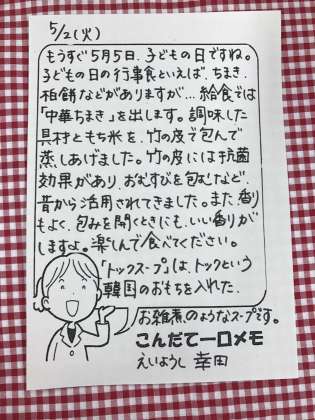 5/2(火)
もうすぐ5月5日、子どもの日ですね。
子どもの日の行事食といえば、ちまき、
柏餅などがありますが…給食では
「中華ちまき」を出します。調味した
具材ともち米を、竹の皮で包んで
蒸しあげました。竹の皮には抗菌
効果があり、おむすびを包むなど、
昔から活用されてきました。また、香り
もよく、包みを開くときにも、いい香りが
しますよ。楽しんで食べてください。
「トックスープ」は、トックという
韓国のおもちを入れた、
お雑煮のようなスープです。
こんだて一口メモ
えいようし 幸田